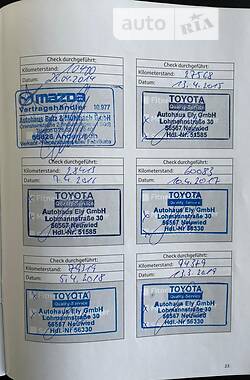 auto RIA
Check durchgeführt:
Kilometerstand: 10400
Datum: 28.04.2014
mazda
Vertragshändler 10.977
56626 Andernach
Check durchgeführt:
Kilometerstand: 27568
Datum: 13.4.2015
TOYOTA
Quality-Service
Autohaus Ely GmbH
Lohmannstraße 30
56567 Neuwied
Hdl-Nr 51585
Check durchgeführt:
Kilometerstand:
Datum:
TOYOTA
Quality-Service
Autohaus Ely GmbH
Lohmannstraße 30
56567 Neuwied
Hdl-Nr. 51585
Check durchgeführt:
Kilometerstand: 60083
Datum: 10.4.2017
TOYOTA
Quality-Service
Autohaus Ely GmbH
Lohmannstraße 30
56567 Neuwied
Hdl-Nr 56330
Check durchgeführt:
Kilometerstand:
Datum: 5.4.2018
TOYOTA
Quality-Service
Autohaus Ely GmbH
Lohmannstraße 30
56567 Neuwied
Hdl-Nr 56330
Check durchgeführt:
Kilometerstand:
Datum: 13.3.2019
TOYOTA
Quality-Service
Autohaus Ely GmbH
Lohmannstraße 30
56567 Neuwied
Hdl-Nr 56330